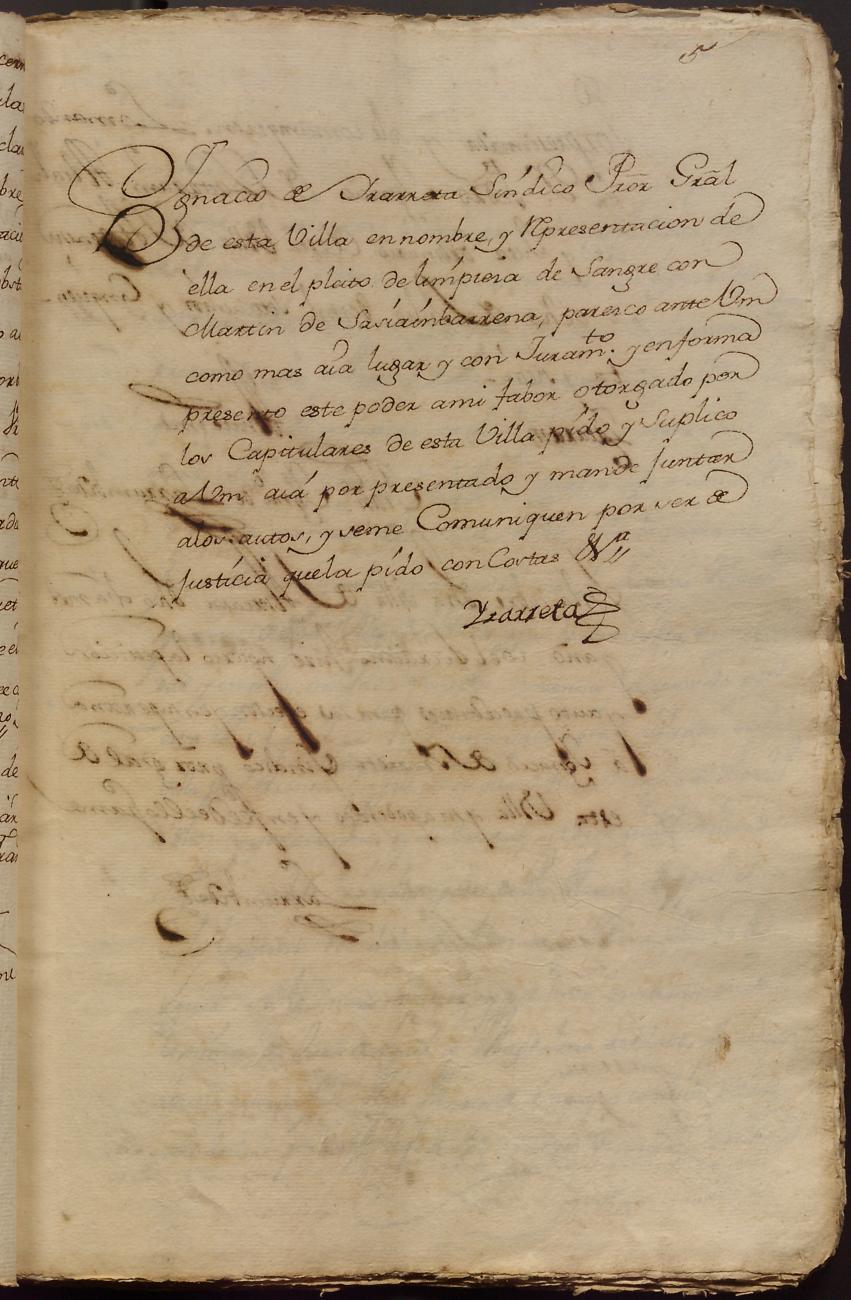 5
Ygnacio de Yrarreta Síndico Pror Gral
de esta Villa en nombre, y Representacion de
ella en el pleito de limpieia de Sangre con
Martin de Sasíaínbarrena, paresco ante Vm
como mas aia lugar y con Juramto. y en forma
presento este poder ami fabor otorgado por
los Capitulares de esta Villa pído y Suplico
a Vm aiá por presentado y mande Juntar
alos autos, y seme Comuniquen por ser de
Justícia quela pído con Costas &a
Yrarreta